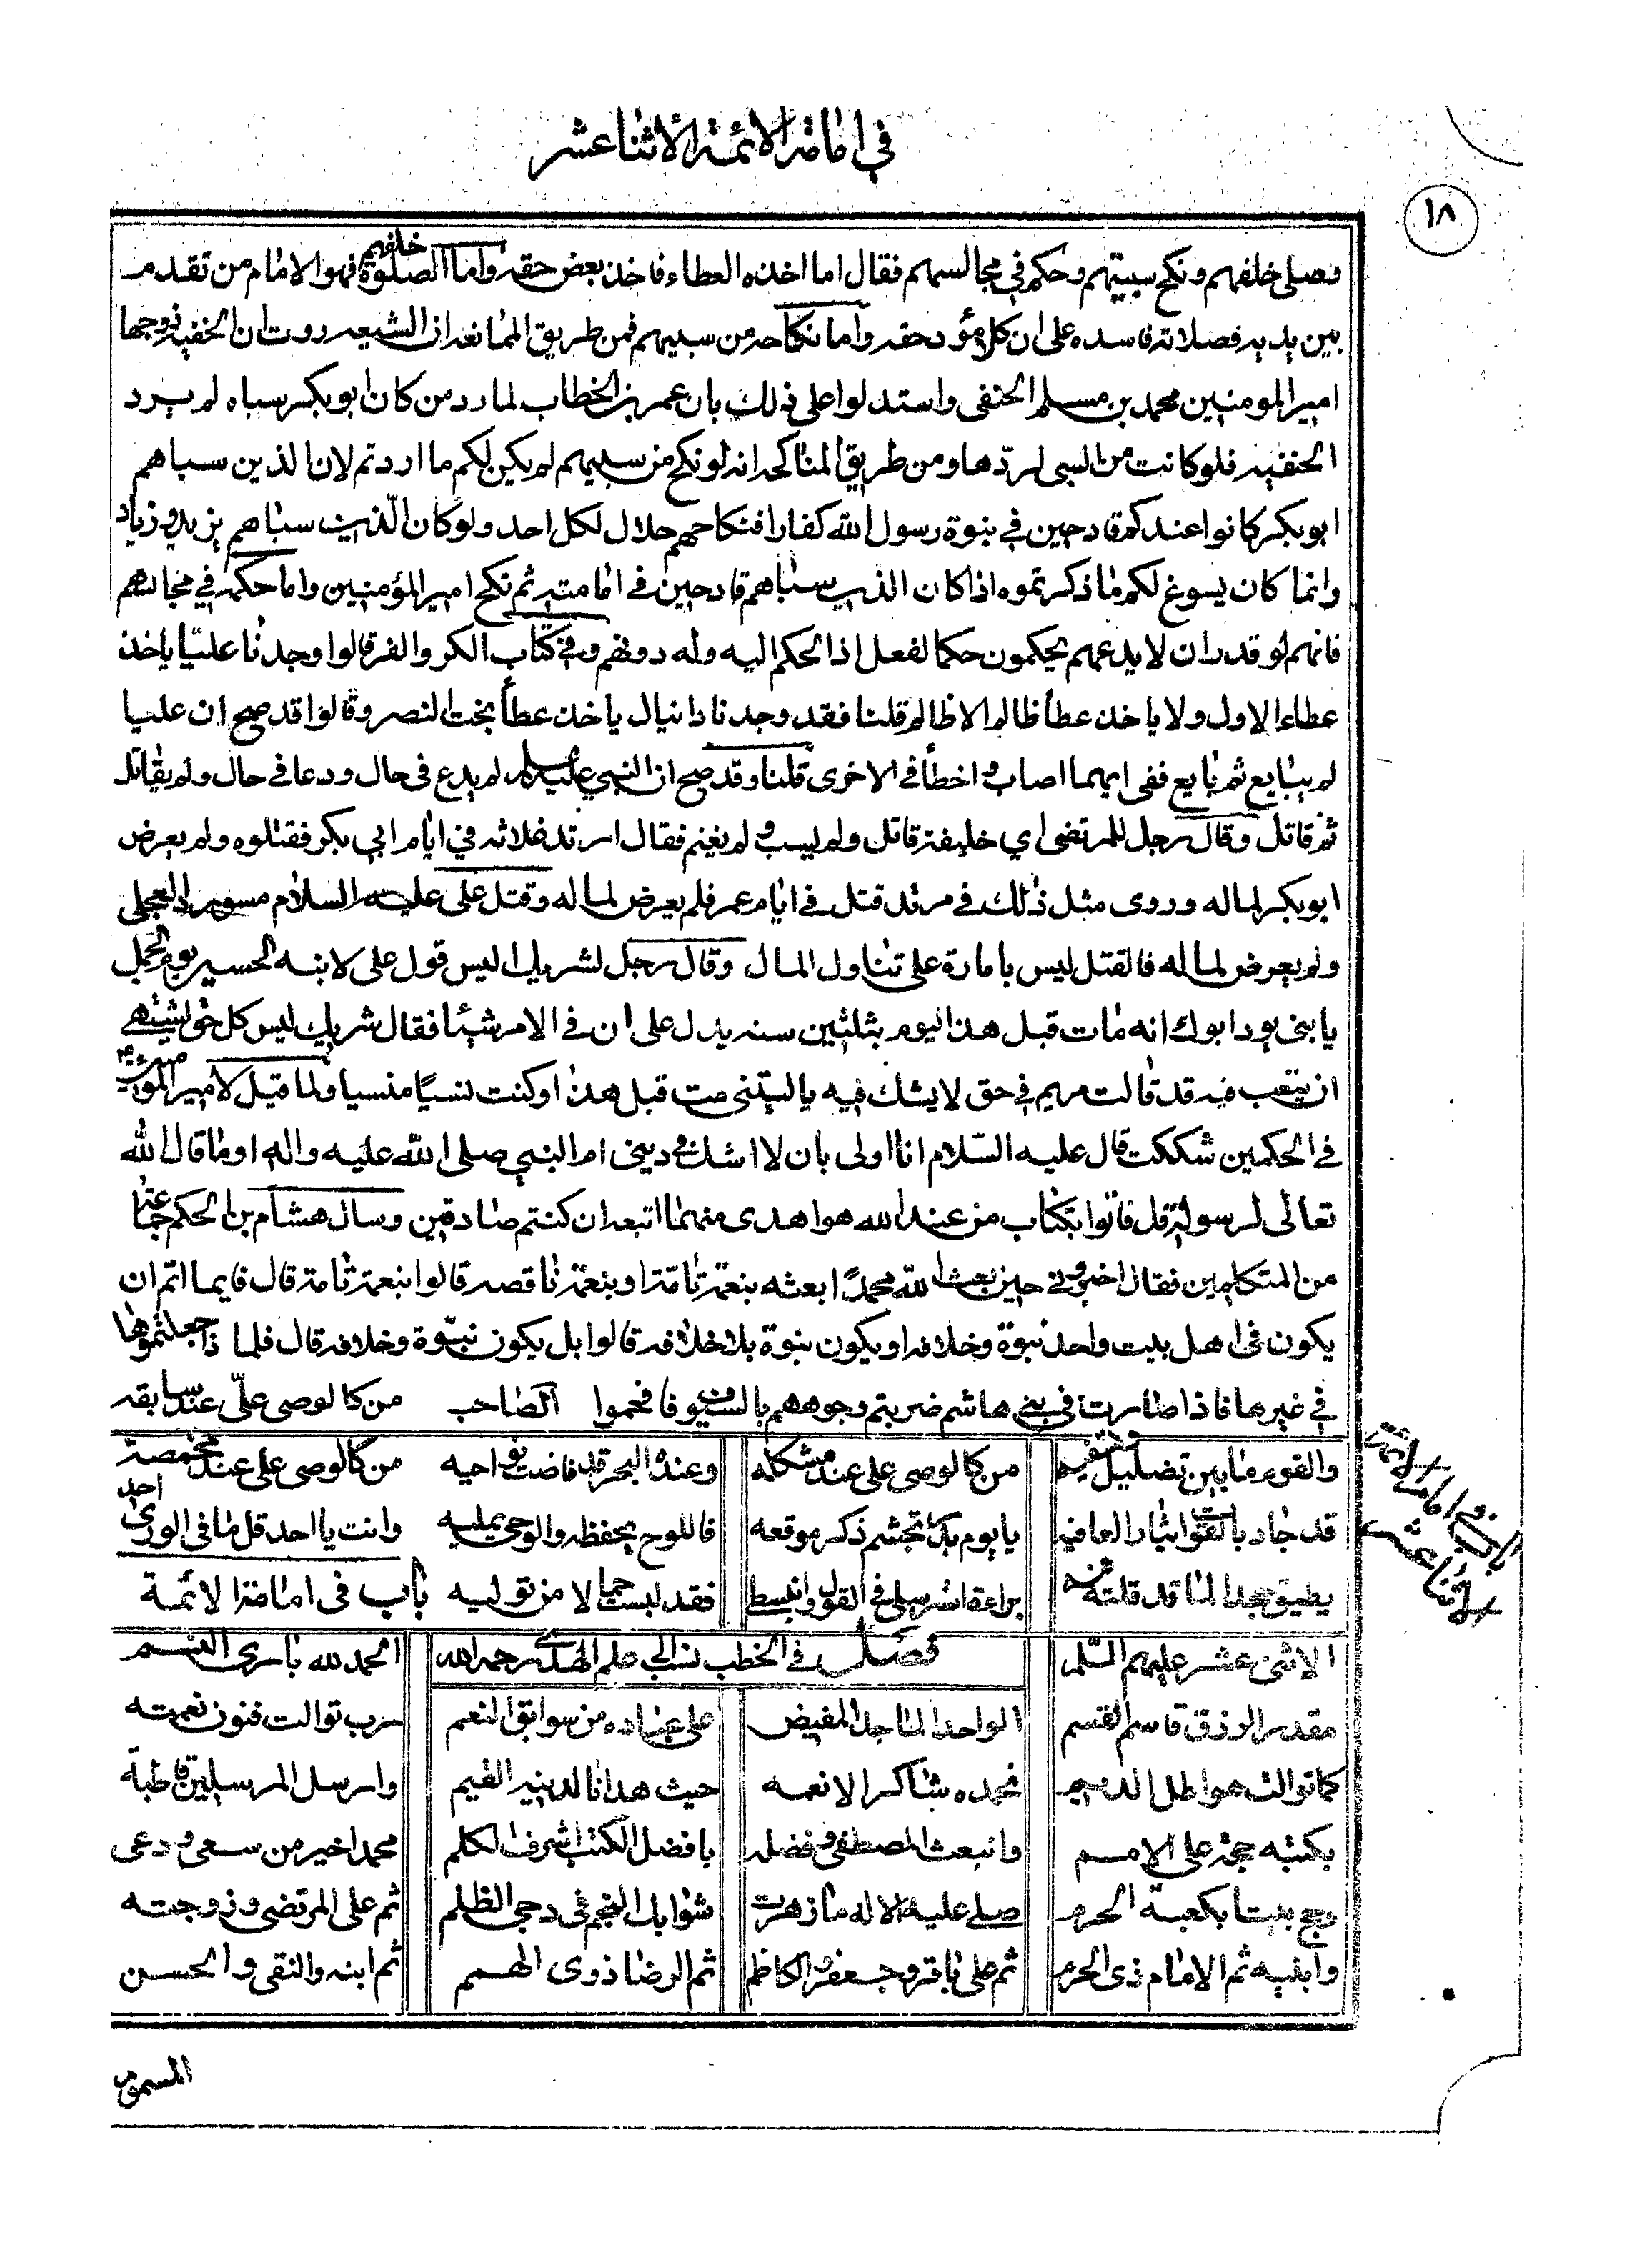 في امامة الائمة الاثنا عشر
١٨
وصلى خلفهم ونكح سبيتهم وحكم في مجالسهم فقال اما اخذه العطاء فاخذ بعض حقه واما الصلوة خلفهم فهو الامام من تقدم
بين يديه فصلاته فاسده على ان كلا مؤد حقه واما نكاحه من سبيهم فمن طريق الممانعه ان الشيعه روت ان الحنفيه زوجها
امير المومنين محمد بن مسلم الحنفي واستدلوا على ذلك بان عمر بن الخطاب لما رد من كان ابو بكر سباه لم يرد
الحنفيه فلو كانت من السبي لردها ومن طريق المناكحه انه لو نكح من سبيهم لم يكن لكم ما اردتم لان الذين سباهم
ابو بكر كانوا عندكم قادحين في نبوة رسول الله كفارا فنكاحهم حلال لكل احد ولو كان الذين سباهم يزيد و زياد
وانما كان يسوغ لكم ما ذكرتموه اذا كان الذين سباهم قادحين في امامته ثم نكح امير المؤمنين واما حكمه في مجالسهم
فانهم لو قدر ان لا يدعهم يحكمون حكما لفعل اذا الحكم اليه وله دونهم وفي كتاب الكر والفر قالوا وجدنا عليّا ياخذ
عطاء الاول ولا ياخذ عطأ ظالم الا ظالم قلنا فقد وجدنا دانيال ياخذ عطأ بخت النصر وقالوا قد صح ان عليا
لم يبايع ثم بايع ففي ايهما اصاب و اخطأ في الاخرى قلنا وقد صح ان النبي عليه السلام لم يدع في حال ودعا في حال ولم يقاتل
ثم قاتل وقال رجل للمرتضى اي خليفة قاتل ولم يسب و لم يغنم فقال ارتد علاثه في ايام ابي بكر فقتلوه ولم يعرض
ابو بكر لماله وروى مثل ذلك في مرتد قتل في ايام عمر فلم يعرض لماله وقتل على عليه السلام مسورد العجلي
ولم يعرض لماله فالقتل ليس بامارة على تناول المال وقال رجل لشريك اليس قول على لابنه الحسين يوم الجمل
يا بني يود ابوك انه مات قبل هذا اليوم بثلثين سنه يدل على ان في الامر شيئا فقال شريك ليس كل حق يشتهى
ان يتعب فيه قد قالت مريم في حق لا يشك فيه يا ليتني مت قبل هذا وكنت نسيًا منسيا ولما قيل لامير المؤمنين
في الحكمين شككت قال عليه السّلام انا اولى بان لا اشك في ديني ام النبي صلى الله عليه واله اوما قال الله
تعالى لرسوله قل فأتوا بكتاب من عند الله هو اهدى منهما اتبعه ان كنتم صادقين وسال هشام بن الحكم جماعة
من المتكلمين فقال اخبروني حين بعث الله محمدًا ابعثه بنعمة تامّة او بنعمة ناقصه قالوا بنعمة تامة قال فايما اتم ان
يكون في اهل بيت واحد نبوة وخلافه او يكون نبوة بلا خلافه قالوا بل يكون نبوّة وخلافه قال فلماذا جعلتموها
في غيرها فاذا صارت في بني هاشم ضربتم وجوههم بالسيوف فافحموا الصاحب من كالوصى علّي عند سابقه
والقوم ما بين تضليل وتسفيه من كالوصى على عند مشكله وعنده البحر قد فاضت نواحيه من كالوصى على عند مخمصة
قد جاد بالقوت ايثارا لعافيه يا يوم بدر تجشم ذكر موقعه فاللوح يحفظه والوحي يمليه وانت يا احد قل ما في الورى احد
يطيق جحدا لما قد قلته فيه براءة استرسلي في القول وانبسطي فقد لبست جمالا من توليه باب في امامة الائمة
الاثنى عشر عليهم السّلم فصل في الخطب علم الهدى رحمه الله الحمد لله بارئ النسم
مقدر الرزق قاسم القسم الواحد الماجد المفيض على عباده من سوابق النعم رب توالت فنون نعمته
كما توالت هواطل الديم نحمده شاكرا لانعمه حيث هدانا لدينه القيم وارسل المرسلين قاطبة
بكتبه حجة على الامم وانبعث المصطفى وفضله بافضل الكتب اشرف الكلم محمدا خير من سعى ودعى
وحج بيتا بكعبة الحرم صلى عليه الاله ما زهرت شوابك النجم في دجى الظلم ثم على المرتضى وزوجته
وابنيه ثم الامام ذي الحرم ثم على باقر و جعفر والكاظم ثم الرضا ذوى الهمم ثم ابنه والنقى والحسن
باب في امامة الائمة
الاثنا عشر
المسموم